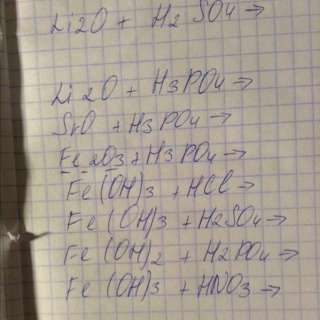 Li2O + H2SO4 →
Li2O + H3PO4 →
SrO + H3PO4 →
Fe2O3 + H3PO4 →
Fe(OH)3 + HCl →
Fe(OH)3 + H2SO4 →
Fe(OH)2 + H2PO4 →
Fe(OH)3 + HNO3 →